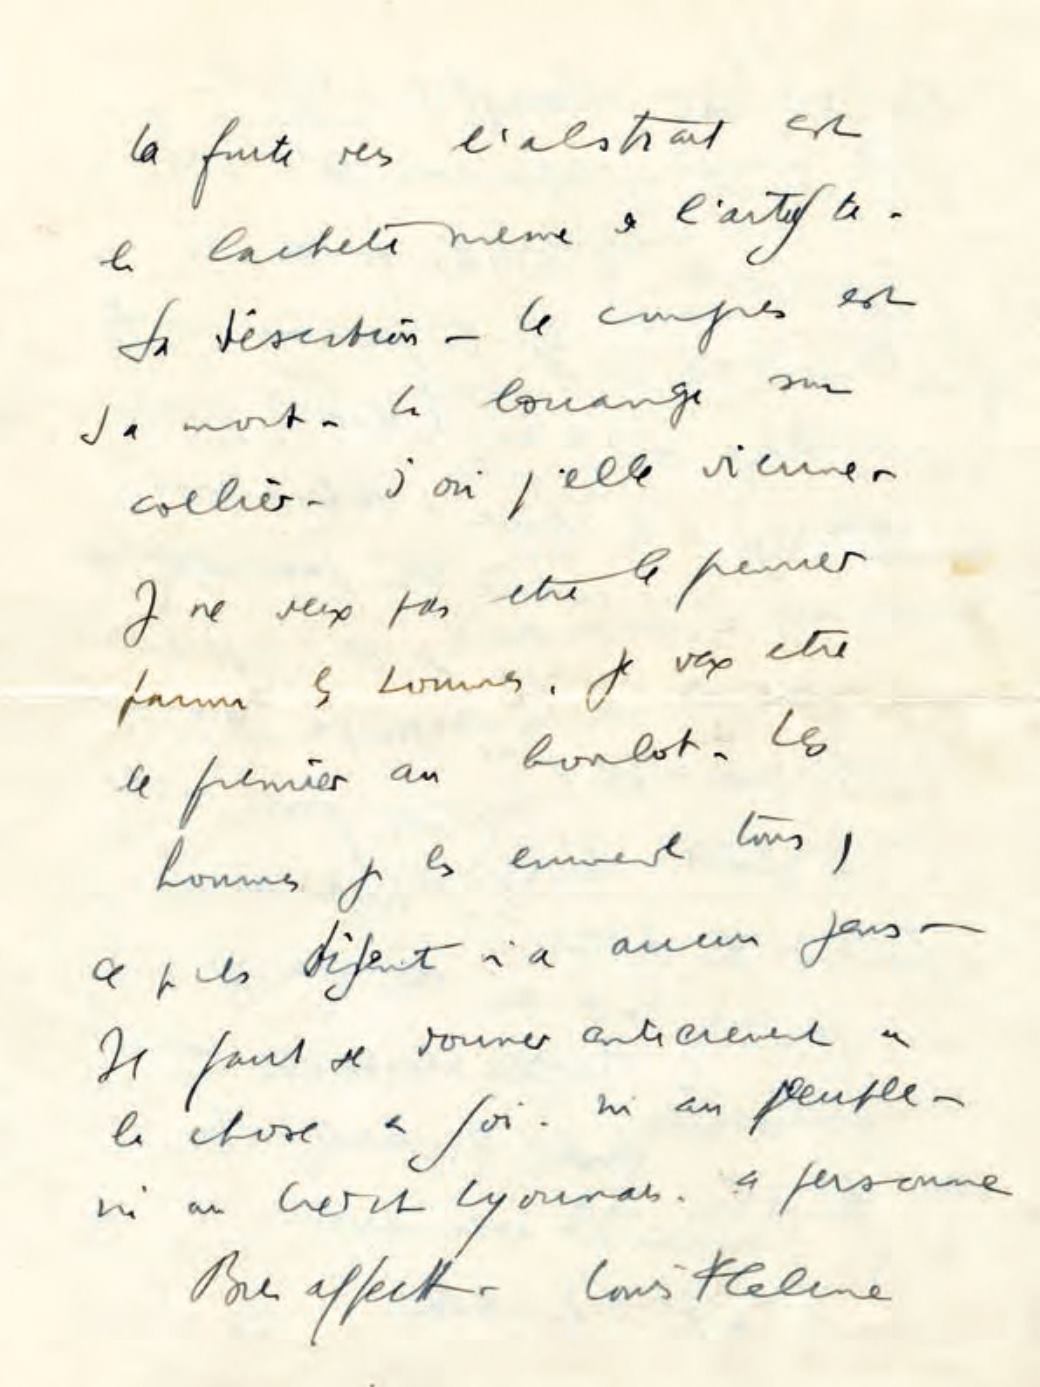 La fuite vers l'abstrait est
la lacheté même de l'artiste -
Sa désertion - le congrès est
sa mort - la louange son
collier - d'où qu'elle vienne -
Je ne veux pas etre le premier
parmi les hommes. Je veux etre
le premier au boulot - Les
hommes je les emmerde tous,
ce qu'ils disent n'a aucun sens -
Il faut se donner entierement à
la chose en soi. ni au peuple -
ni au Crédit Lyonnais. à personne
Bien affectt - Louis